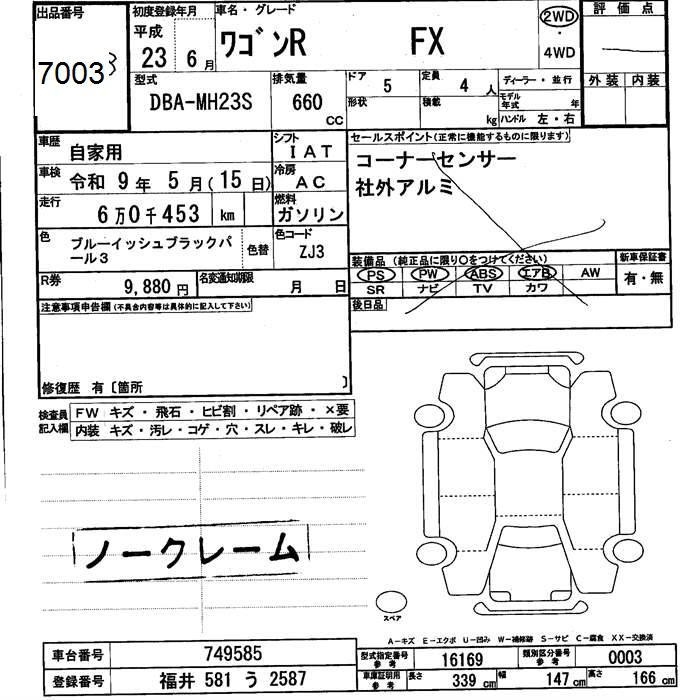 出品番号
7003
初度登録年月
平成
23 6月
車名・グレード
ワゴンR FX
2WD
・
4WD
評価点
外装 内装
型式
DBA-MH23S
排気量
660
CC
ドア
5
定員
4人
ディーラー・並行
形状
積載
kg
モデル年式
年
ハンドル 左・右
車歴
自家用
シフト
IAT
車検
令和 9年 5月(15日)
冷房
AC
走行
6万0千453 km
燃料
ガソリン
色
ブルーイッシュブラックパ
ール3
色替
色コード
ZJ3
R券
9,880円
名変通知期限
月 日
セールスポイント(正常に機能するものに限ります)
コーナーセンサー
社外アルミ
装備品(純正品に限り○をつけてください)
PS PW ABS エアB AW
SR ナビ TV カワ
新車保証書
有・無
後日品
注意事項申告欄(不具合内容等は具体的に記入して下さい)
修復歴 有〔箇所 〕
検査員
記入欄
FW キズ・飛石・ヒビ割・リペア跡・×要
内装 キズ・汚レ・コゲ・穴・スレ・キレ・破レ
ノークレーム
スペア
A－キズ E－エクボ U－凹み W－補修跡 S－サビ C－腐食 XX－交換済
車台番号 749585
登録番号 福井 581 う 2587
型式指定番号
参考
16169
類別区分番号
参考
0003
車庫証明用
参考
長さ 339 cm
幅 147 cm
高さ 166 cm